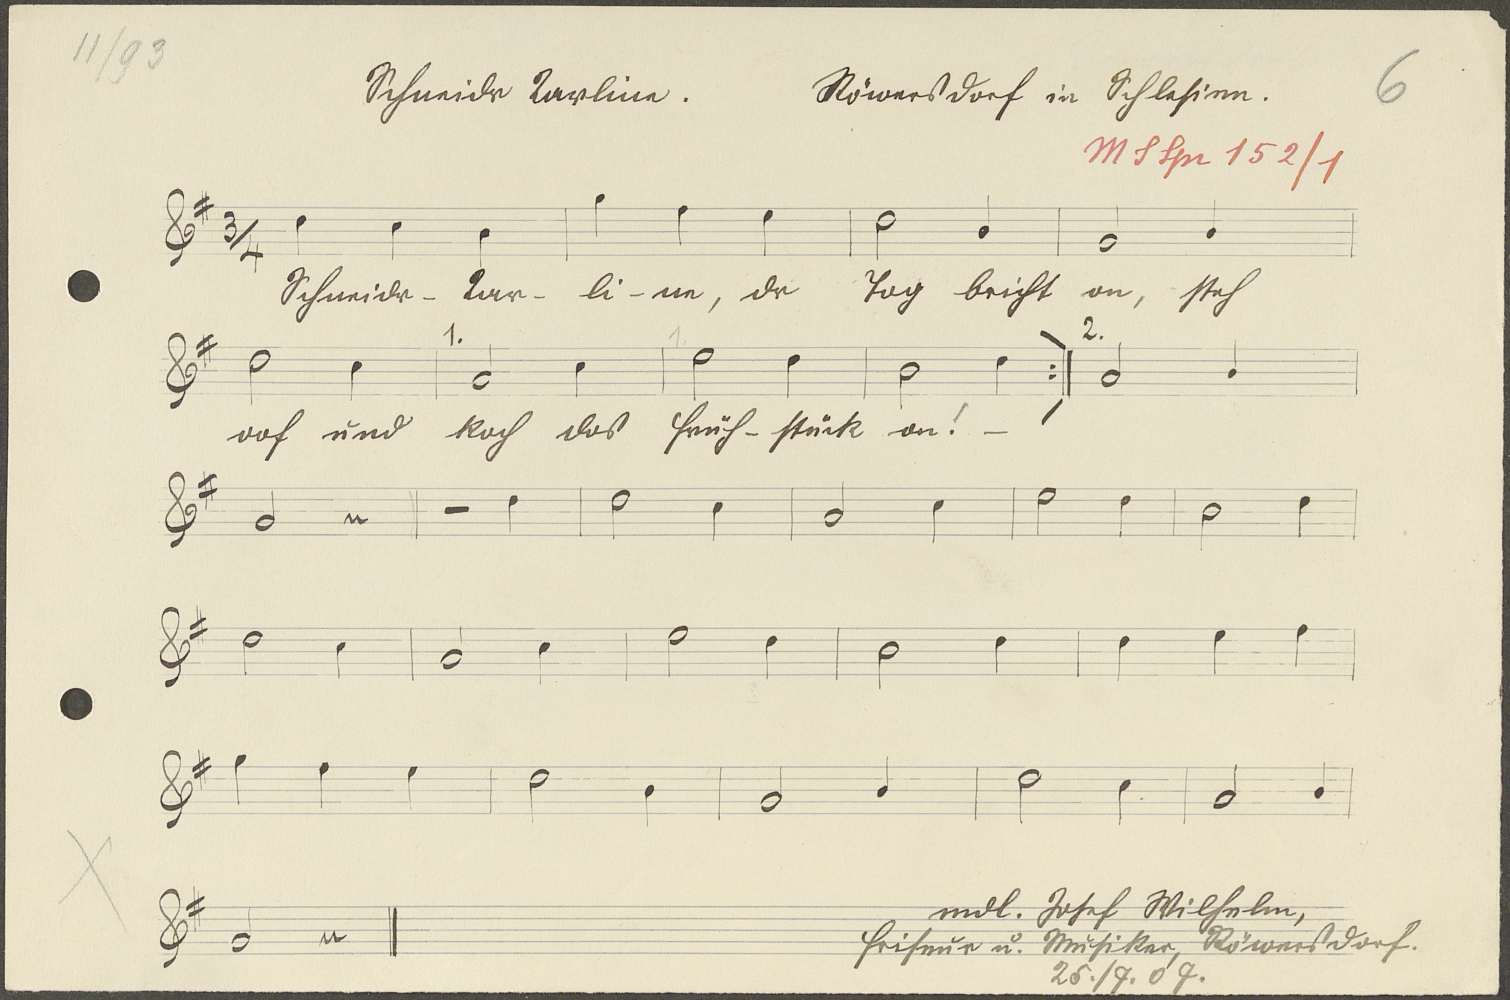 11/93
6
Schneidr Karline. Röwersdorf in Schlesien.
MS Spr 152/1
3/4
Schneidr- Kar- li-ne, dr Tog bricht on, steh
1. 1. 2.
oof und koch dos Früh-stück on! -
mdl. Josef Wilhelm,
Friseur u. Musiker, Röwersdorf.